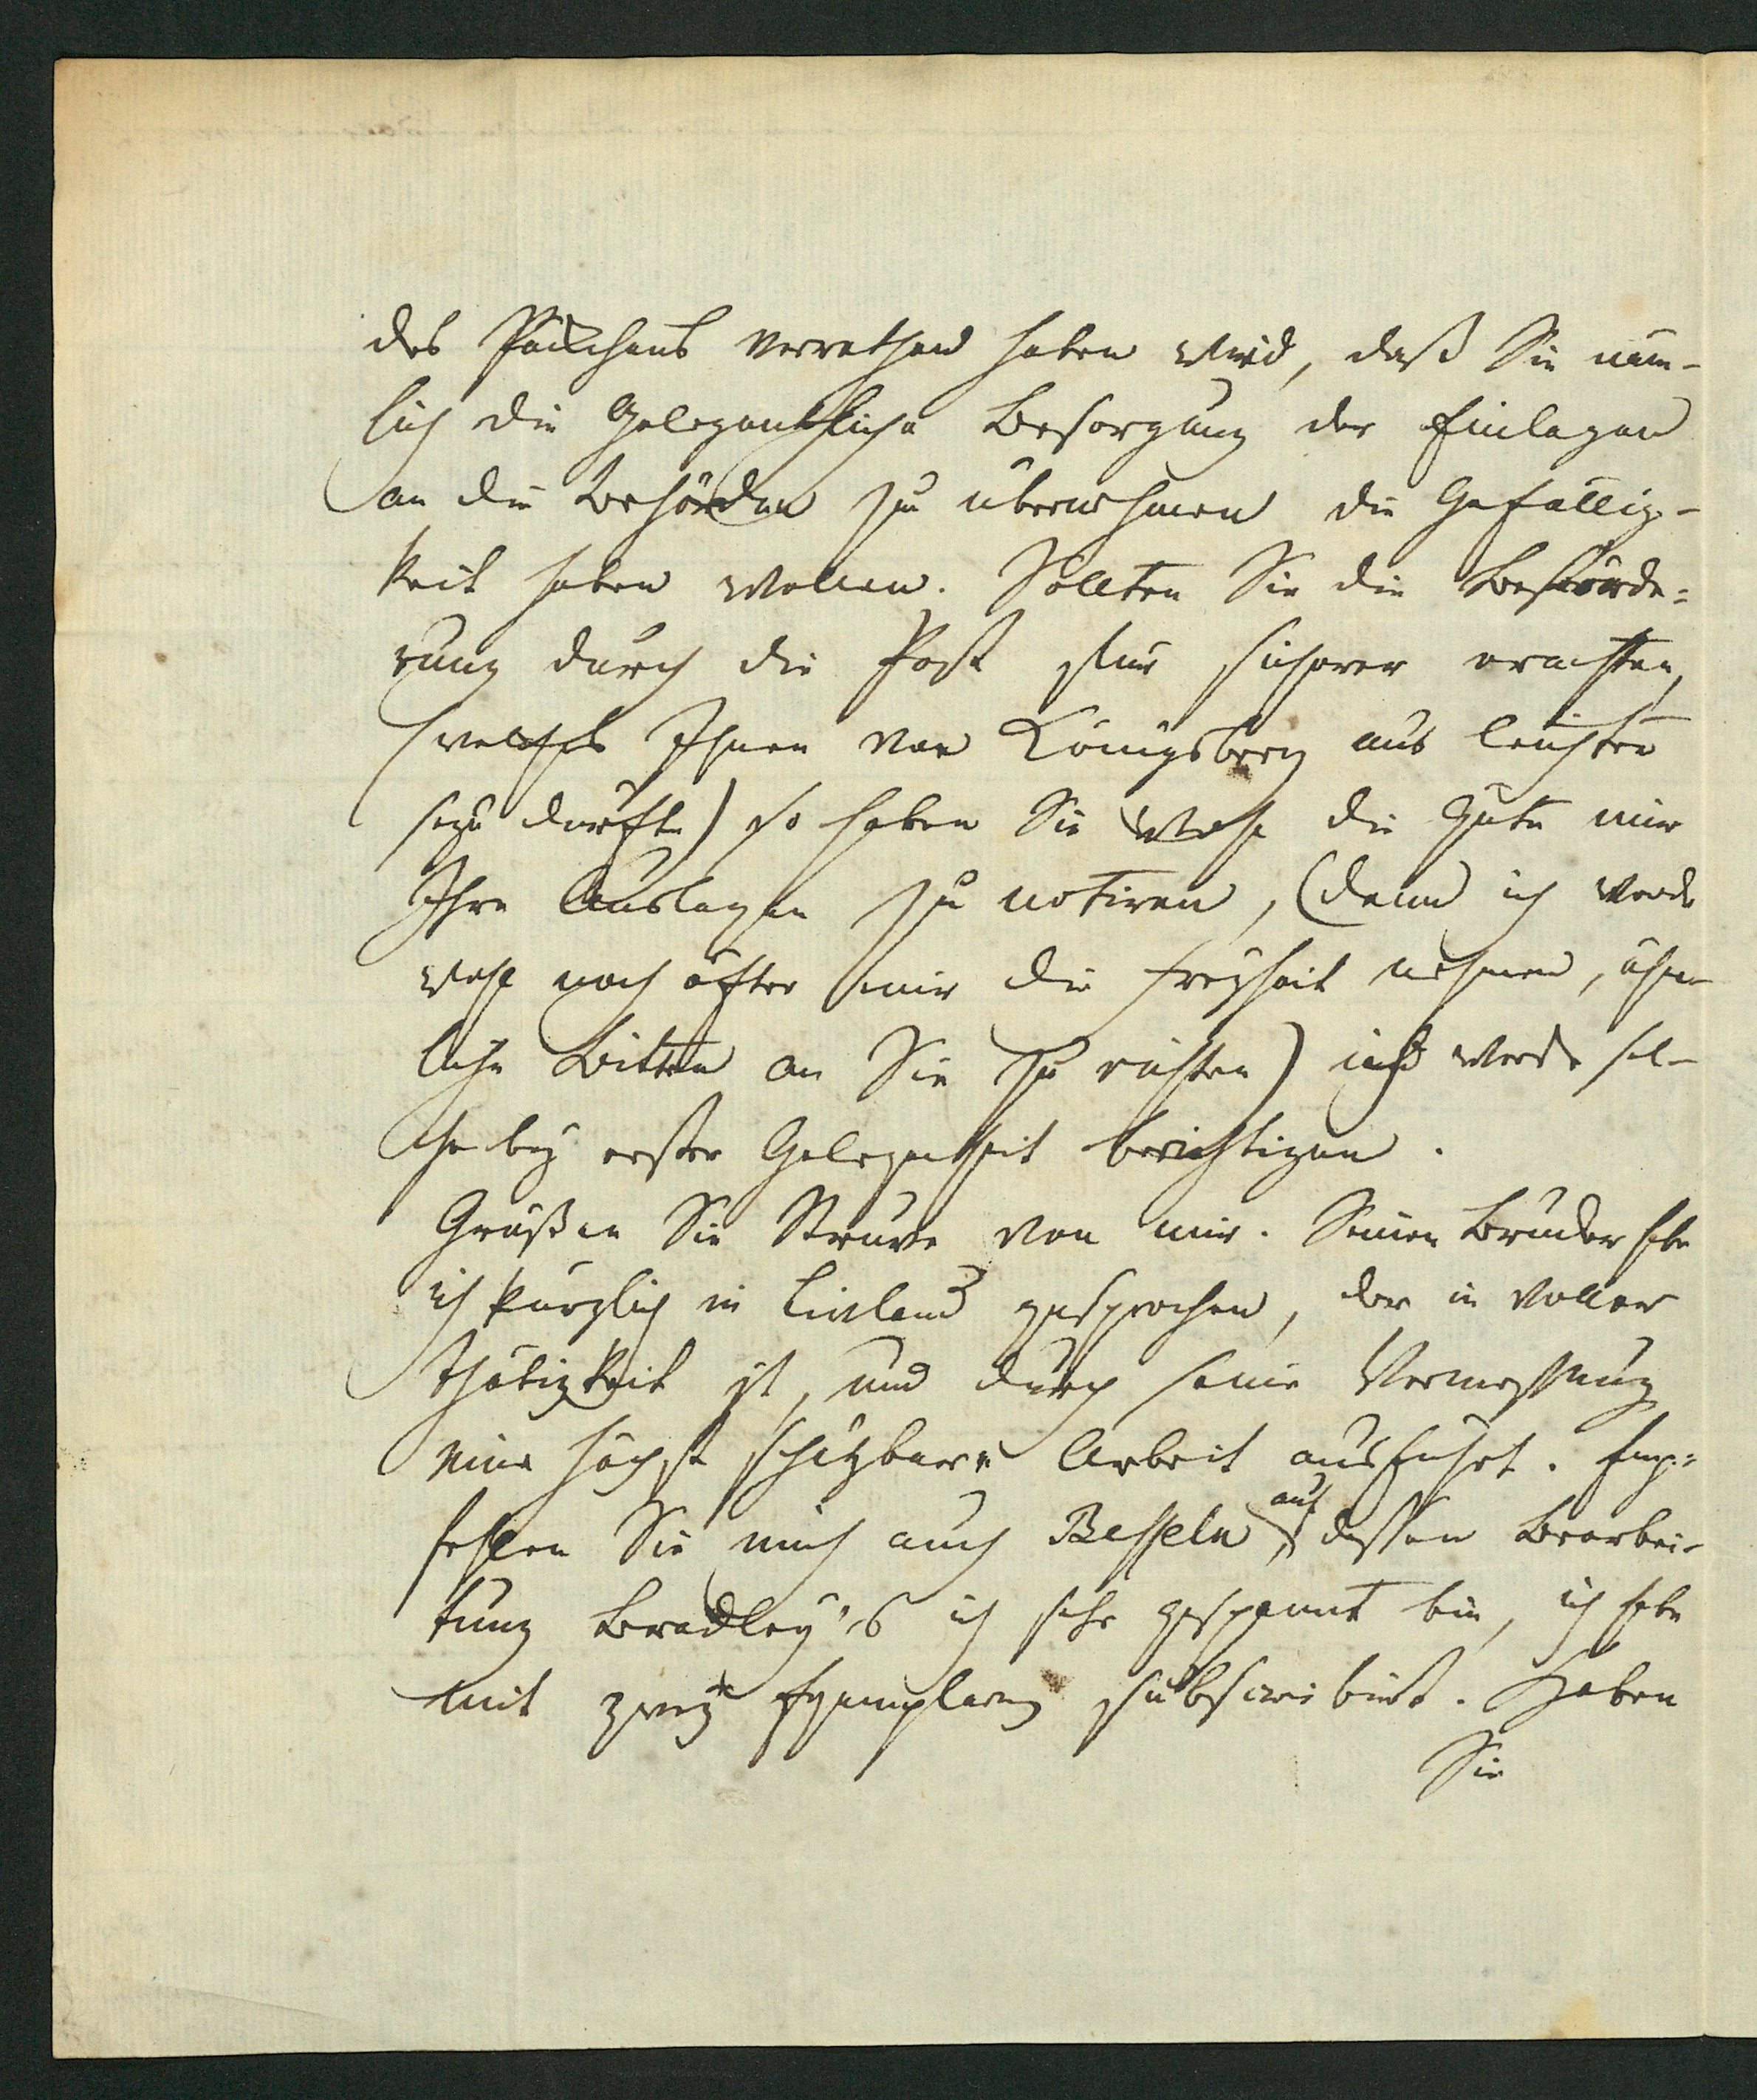 des Päckchens verrathen haben wird, daß Sie näm-
lich die Gelegentliche Besorgung der Einlagen
an die Behörden zu übernehmen die Gefällig-
keit haben wollen. Sollten Sie die Beförde=
rung durch die Post für sicherer erachten,
(welches Ihnen von Königsberg aus leichter
seyn dürfte) so haben Sie wohl die Güte mir
Ihre Auslagen zu notiren, (denn ich werde
wohl noch öfter mir die Freyheit nehmen, ähn-
liche Bitten an Sie zu richten) ich werde sol-
che bey erster Gelegenheit berichtigen.
Grüßen Sie Struve von mir. Seinen Bruder habe
ich kürzlich in Livland gesprochen, der in voller
Thätigkeit ist, und durch seine Vermessung
eine höchst schätzbare Arbeit ausführt. Emp=
fehlen Sie mich auch Besseln, auf dessen Bearbei-
tung Bradley's ich sehr gespannt bin, ich habe
mit zwey Exemplaren subscribirt. Haben
Sie